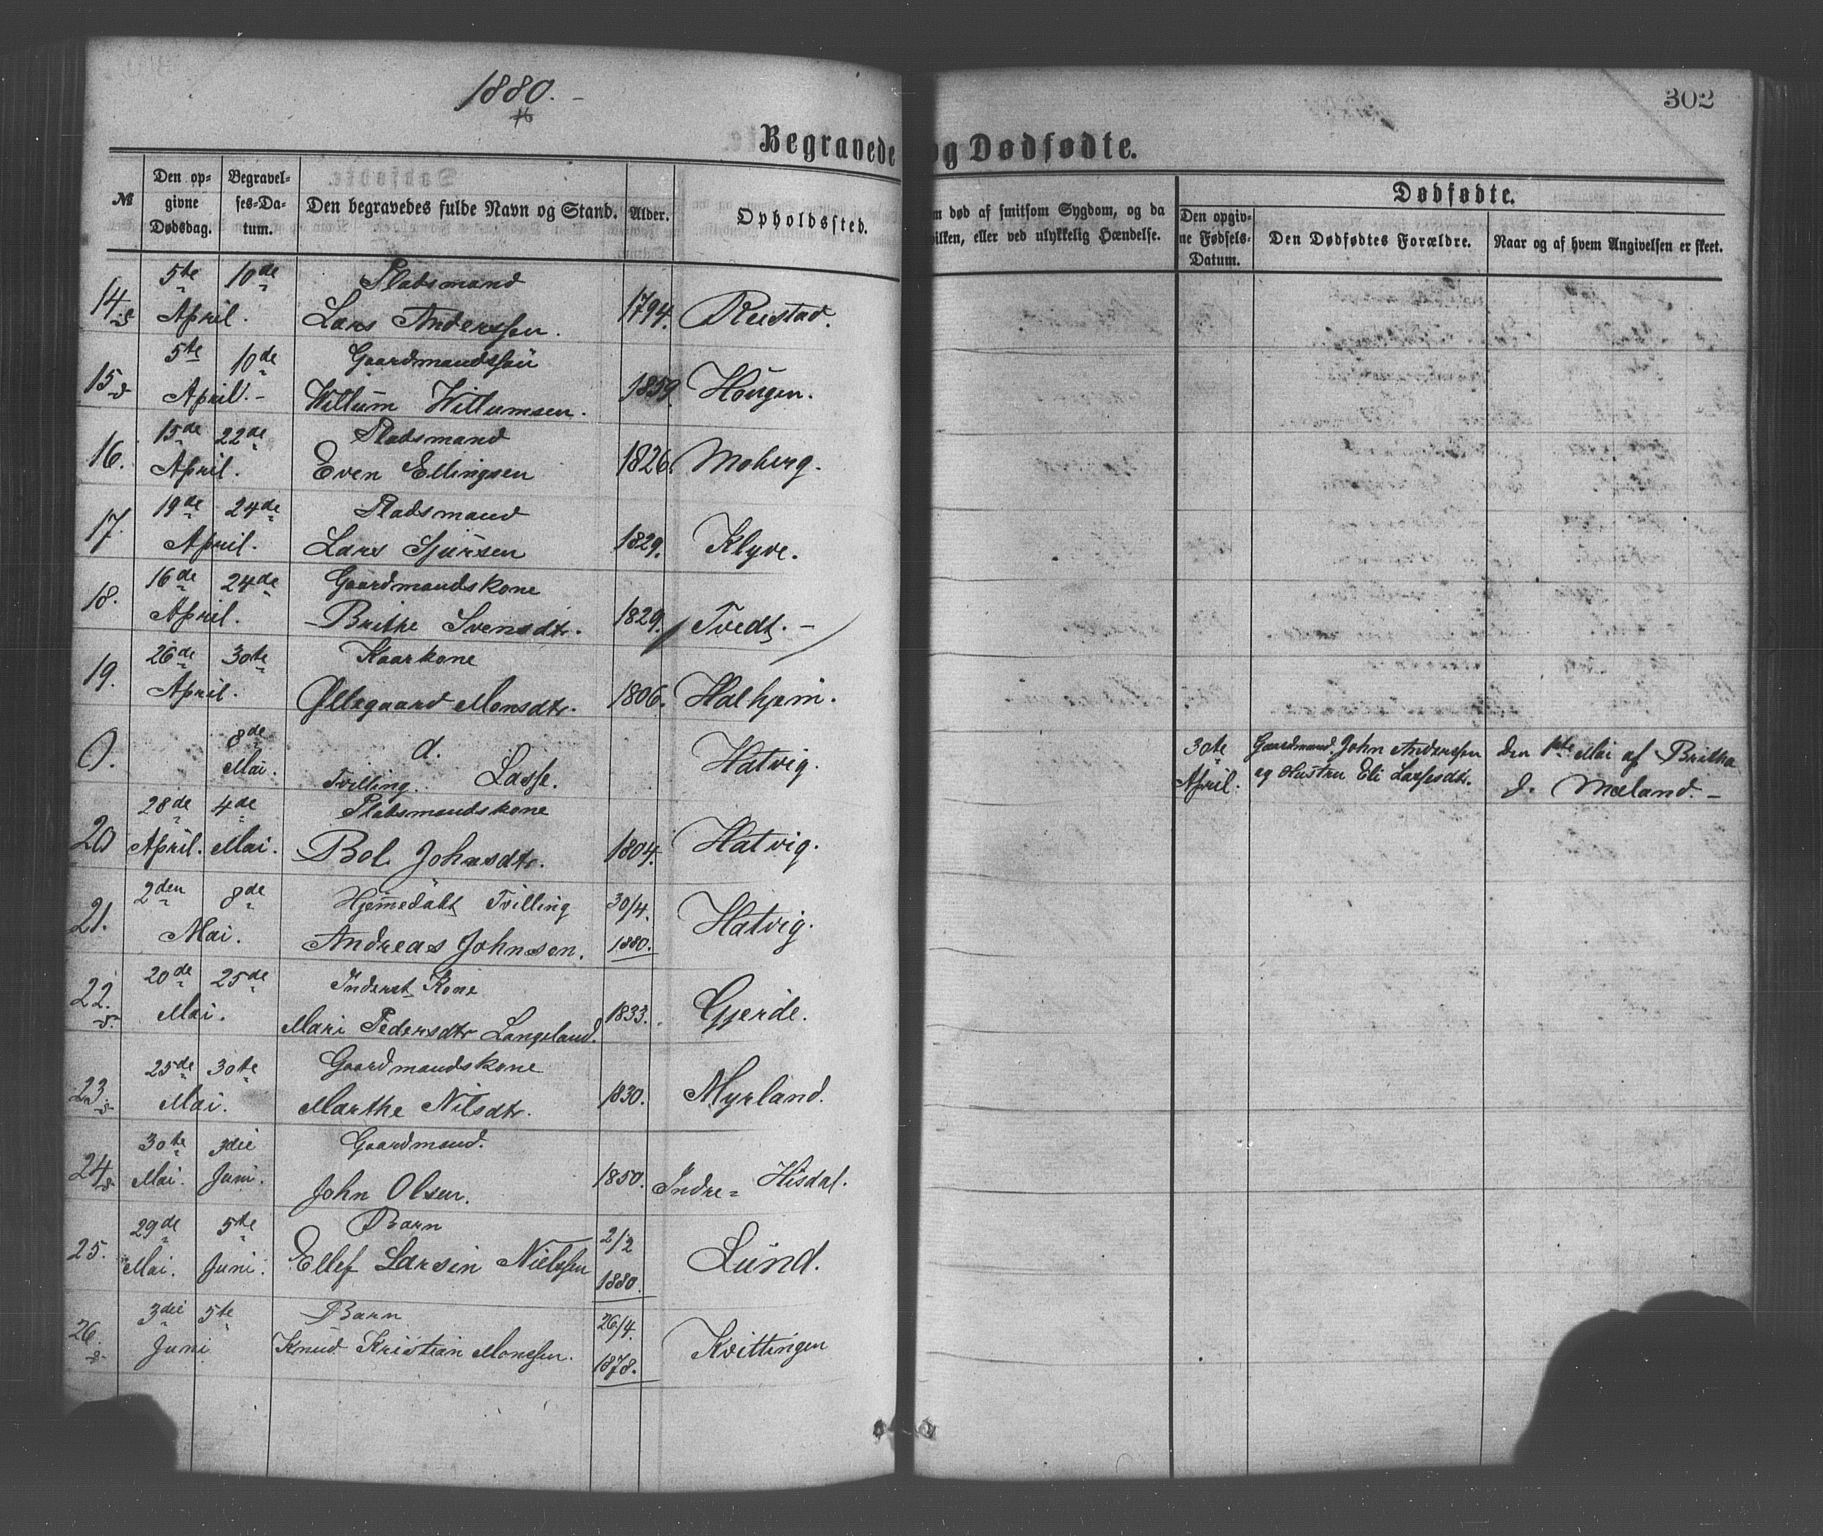 1880.
302
Begravede og Dødfødte.
№
Den opgivne Dødsdag.
Begravelses-Datum.
Den begravedes fulde Navn og Stand.
Alder.
Opholdssted.
død af smitsom Sygdom, og da
hvilken, eller ved ulykkelig Hændelse.
Dødfødte.
Den opgivne Fødsels-Datum.
Den Dødfødtes Forældre.
Naar og af hvem Angivelsen er skeet.
5te 10de Pladsmand
14. April. Lars Anderssen. 1794. Reistad.
5te 10de Gaardmandssön
15 April. Willum Willumsen. 1859. Hougen.
15de 22de Pladsmand
16. April. Even Ellingsen 1826. Moberg.
19de 24de Pladsmand
17. April. Lars Sjursen 1829. Klyve.
16de 24de Gaardmandskone
18. April. Brithe Svensdtr. 1829. Tvedt.
26de 30te Kaarkone
19. April. Øllegaard Monsdtr. 1806. Halhjem.
0. 8de Mai. d. Tvilling. Lasse. Hatvig.
30te April. Gaardmand John Anderssen
og Hustru Eli Larsesdtr.
den 1ste Mai af Britha
J. Mæland.
28de 4de Pladsmandskone
20 April. Mai. Bol Johnsdtr. 1804. Hatvig.
2den 8de Hjemmedöbt Tvilling 30/4.
21. Mai. Andreas Johnsen. 1880. Hatvig.
20de 25de Inderst Kone
22. Mai. Mari Pedersdtr Langeland. 1833. Gjerde.
25de 30te Gaardmandskone
23. Mai. Marthe Nilsdtr. 1830. Myrland.
30te 3die Gaardmand.
24. Mai. Juni. John Olsen. 1850. Indre= Hisdal.
29de 5te Barn 2/2
25. Mai. Juni. Ellef Larsin Nielssen 1880. Lund.
3die 5te Barn 26/4.
26. Juni Knud Kristian Monssen. 1878. Kvittingen